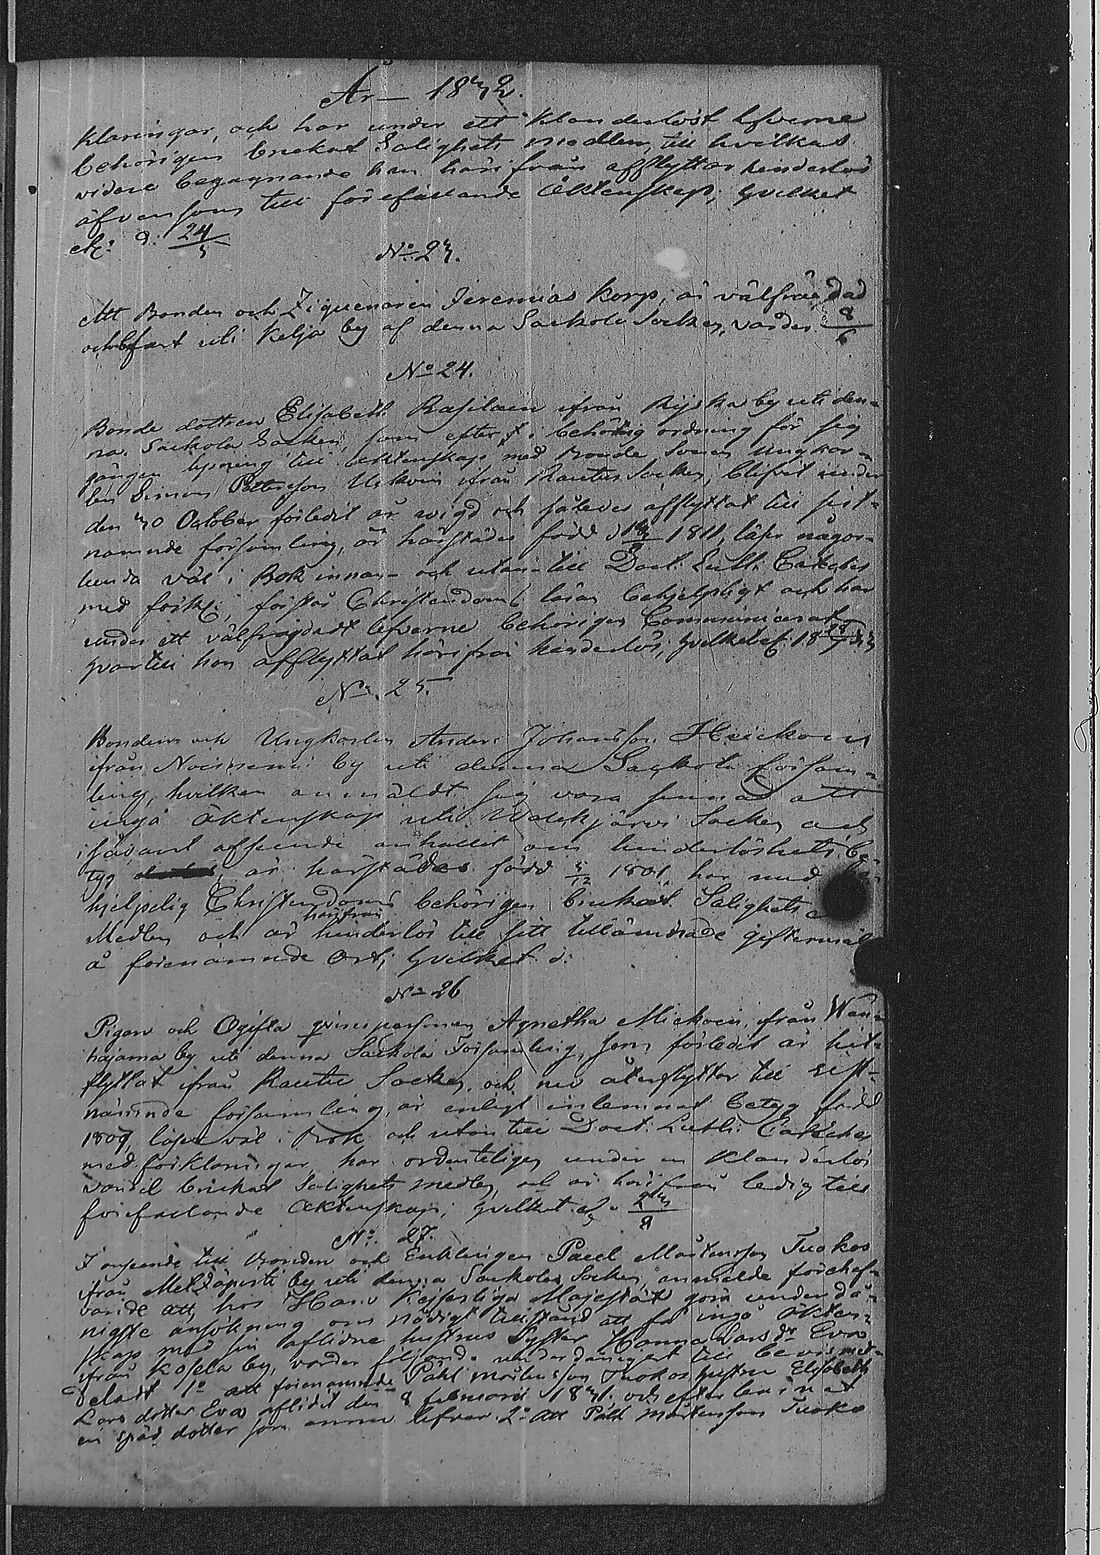 År 1832.
klaringar, och har under ett klanderlöst lefverne
behörigen brukat Salighets medlen, till hvilkas
vidare begagnande han härifrån afflyttar hinderlös
äfvensom till förefallande Äktenskap; hvilket
d: 24/5
No 23.
Att Bonden och Jeremias Korp, är välfräjdad
och uti Kelja by af denna Sackola Socken, vardes 8/6
No 24.
Bonde dottren Elisabeth Rasilain ifrån Rijska by uti den-
na Sackola Socken, som efter i behörig ordning för sig
gången lysning till äktenskap med Bonde Sonen Ungkar-
len Simon Pettersson Ukkoin ifrån Rautus Socken, blifvit
den 30 October förledit år wigd och således afflyttat till sist-
nämnde församling, är härstädes född 1811, läser någor-
lunda väl i Bok innan- och utan till Doct: Luth: Cateches
med förkl:, förstår Christendoms läran behjelpligt och har
under ett välfrägdadt lefverne behörigen Communicerat
hvartill hon afflyttat härifrån hinderlös, hvilket
No. 25.
Bonden och Ungkarlen Anders Johansson Heickoin
ifrån Noisniemi by uti denna Sackola försam-
ling, hvilken anmäldt sig vara sinnad att
ingå Äktenskap uti Walkjärvi Socken och
i sådant afseende anhållit om hinderlöshets be-
tyg är härstädes född 5/12 1801, har med be-
hjelpelig Christendom behörigen brukat Salighets
Medlen och är härifrån hinderlös till sitt tillämnade giftermål
å förenämnde Ort; hvilket d:
No 26
Pigan och Ogifta qvinspersonen Agnetha Mickoin, från Wan-
hajama by uti denna Sackola Församling, som förledit år hit-
flyttat ifrån Rautus Socken, och nu återflyttar till sist-
nämnde församling, är enligt inlemnat betyg född
1809, läser väl i Bok och utan till Doct. Luth: Cateches
med förklaringar, har ordenteligen under en klanderlös
vandel brukat Salighets medlen, och är härifrån ledig till
förefallande Äktenskap; hvilket 23/8
No. 27.
I anseende till Bonden och Enklingen Pauel Mårtensson Tuokos
ifrån Metzäpirtti by uti denna Sackola Socken, anmelde förehaf-
vande att, hos Hans Keiserliga Majestät göra underdå-
nigste ansökning om nådigt tillstånd att få ingå Äkten-
skap med sin aflidne hustrus Syster Hanna Lars dr Evoo
från Kosela by, varder följande underdånigast till bevis med-
deladt 1o att förenämnde Påhl Mårtensson Tuokos hustru Elisabeth
Lars dotter Evoo aflidit den 8 Februarii 1831. och efterlemnat
en späd dotter som ännu lefver. 2o Att Påhl Mårtensson Tuoko